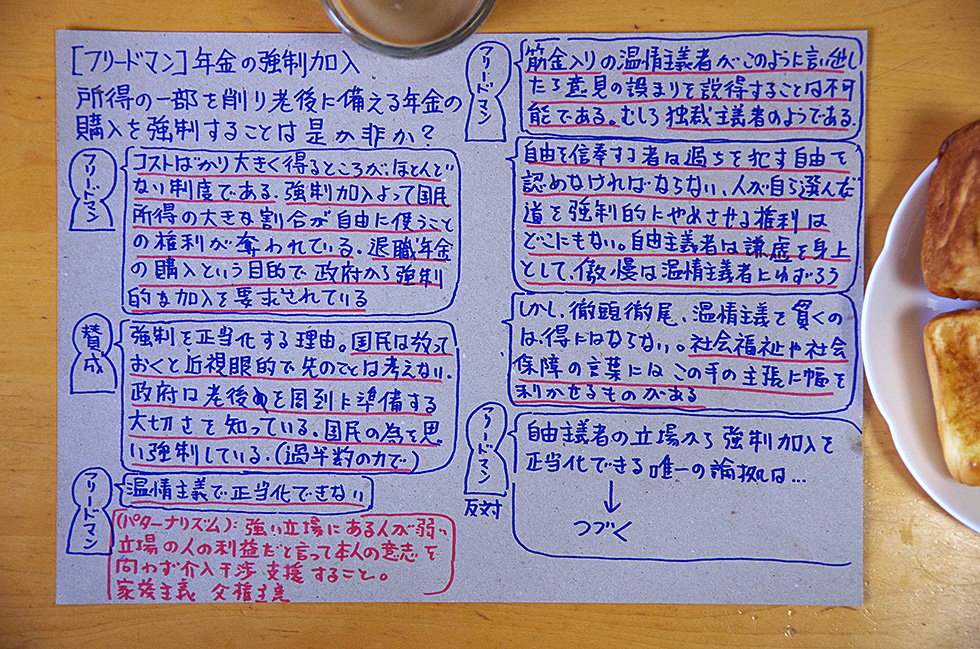 [フリードマン]年金の強制加入
所得の一部を削り老後に備える年金の
購入を強制することは是か非か?
フリードマン
コストばかり大きく得るところが、ほとんど
ない制度である。強制加入よって国民
所得の大きな割合が自由に使うこと
の権利が奪われている。退職年金
の購入という目的で政府から強制
的な加入を要求されている
賛成
強制を正当化する理由。国民は放って
おくと近視眼的で先のことは考えない。
政府は老後を周到に準備する
大切さを知っている。国民の為を思
い強制している。(過半数の力で)
フリードマン
温情主義で正当化できない
(パターナリズム):強い立場にある人が弱い
立場の人の利益だと言って本人の意志を
問わず介入干渉支援すること。
家族主義 父権主義
フリードマン
筋金入りの温情主義者がこのように言い出し
たら意見の誤まりを説得することは不可
能である。むしろ独裁主義者のようである。
自由を信奉する者は過ちを犯す自由を
認めなければならない、人が自ら選んだ
道を強制的にやめさせる権利は
どこにもない。自由主義者は謙虚を身上
として、傲慢は温情主義者にゆずろう
しかし、徹頭徹尾、温情主義を貫くの
は、得にはならない。社会福祉や社会
保障の言葉にはこの手の主張に幅を
利かせるものがある
フリードマン
反対
自由主義者の立場から強制加入を
正当化できる唯一の論拠は…
↓
つづく